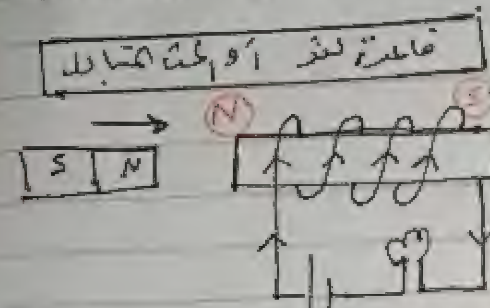 قاعدة لنز أو الحث المتبادل
N S
S N